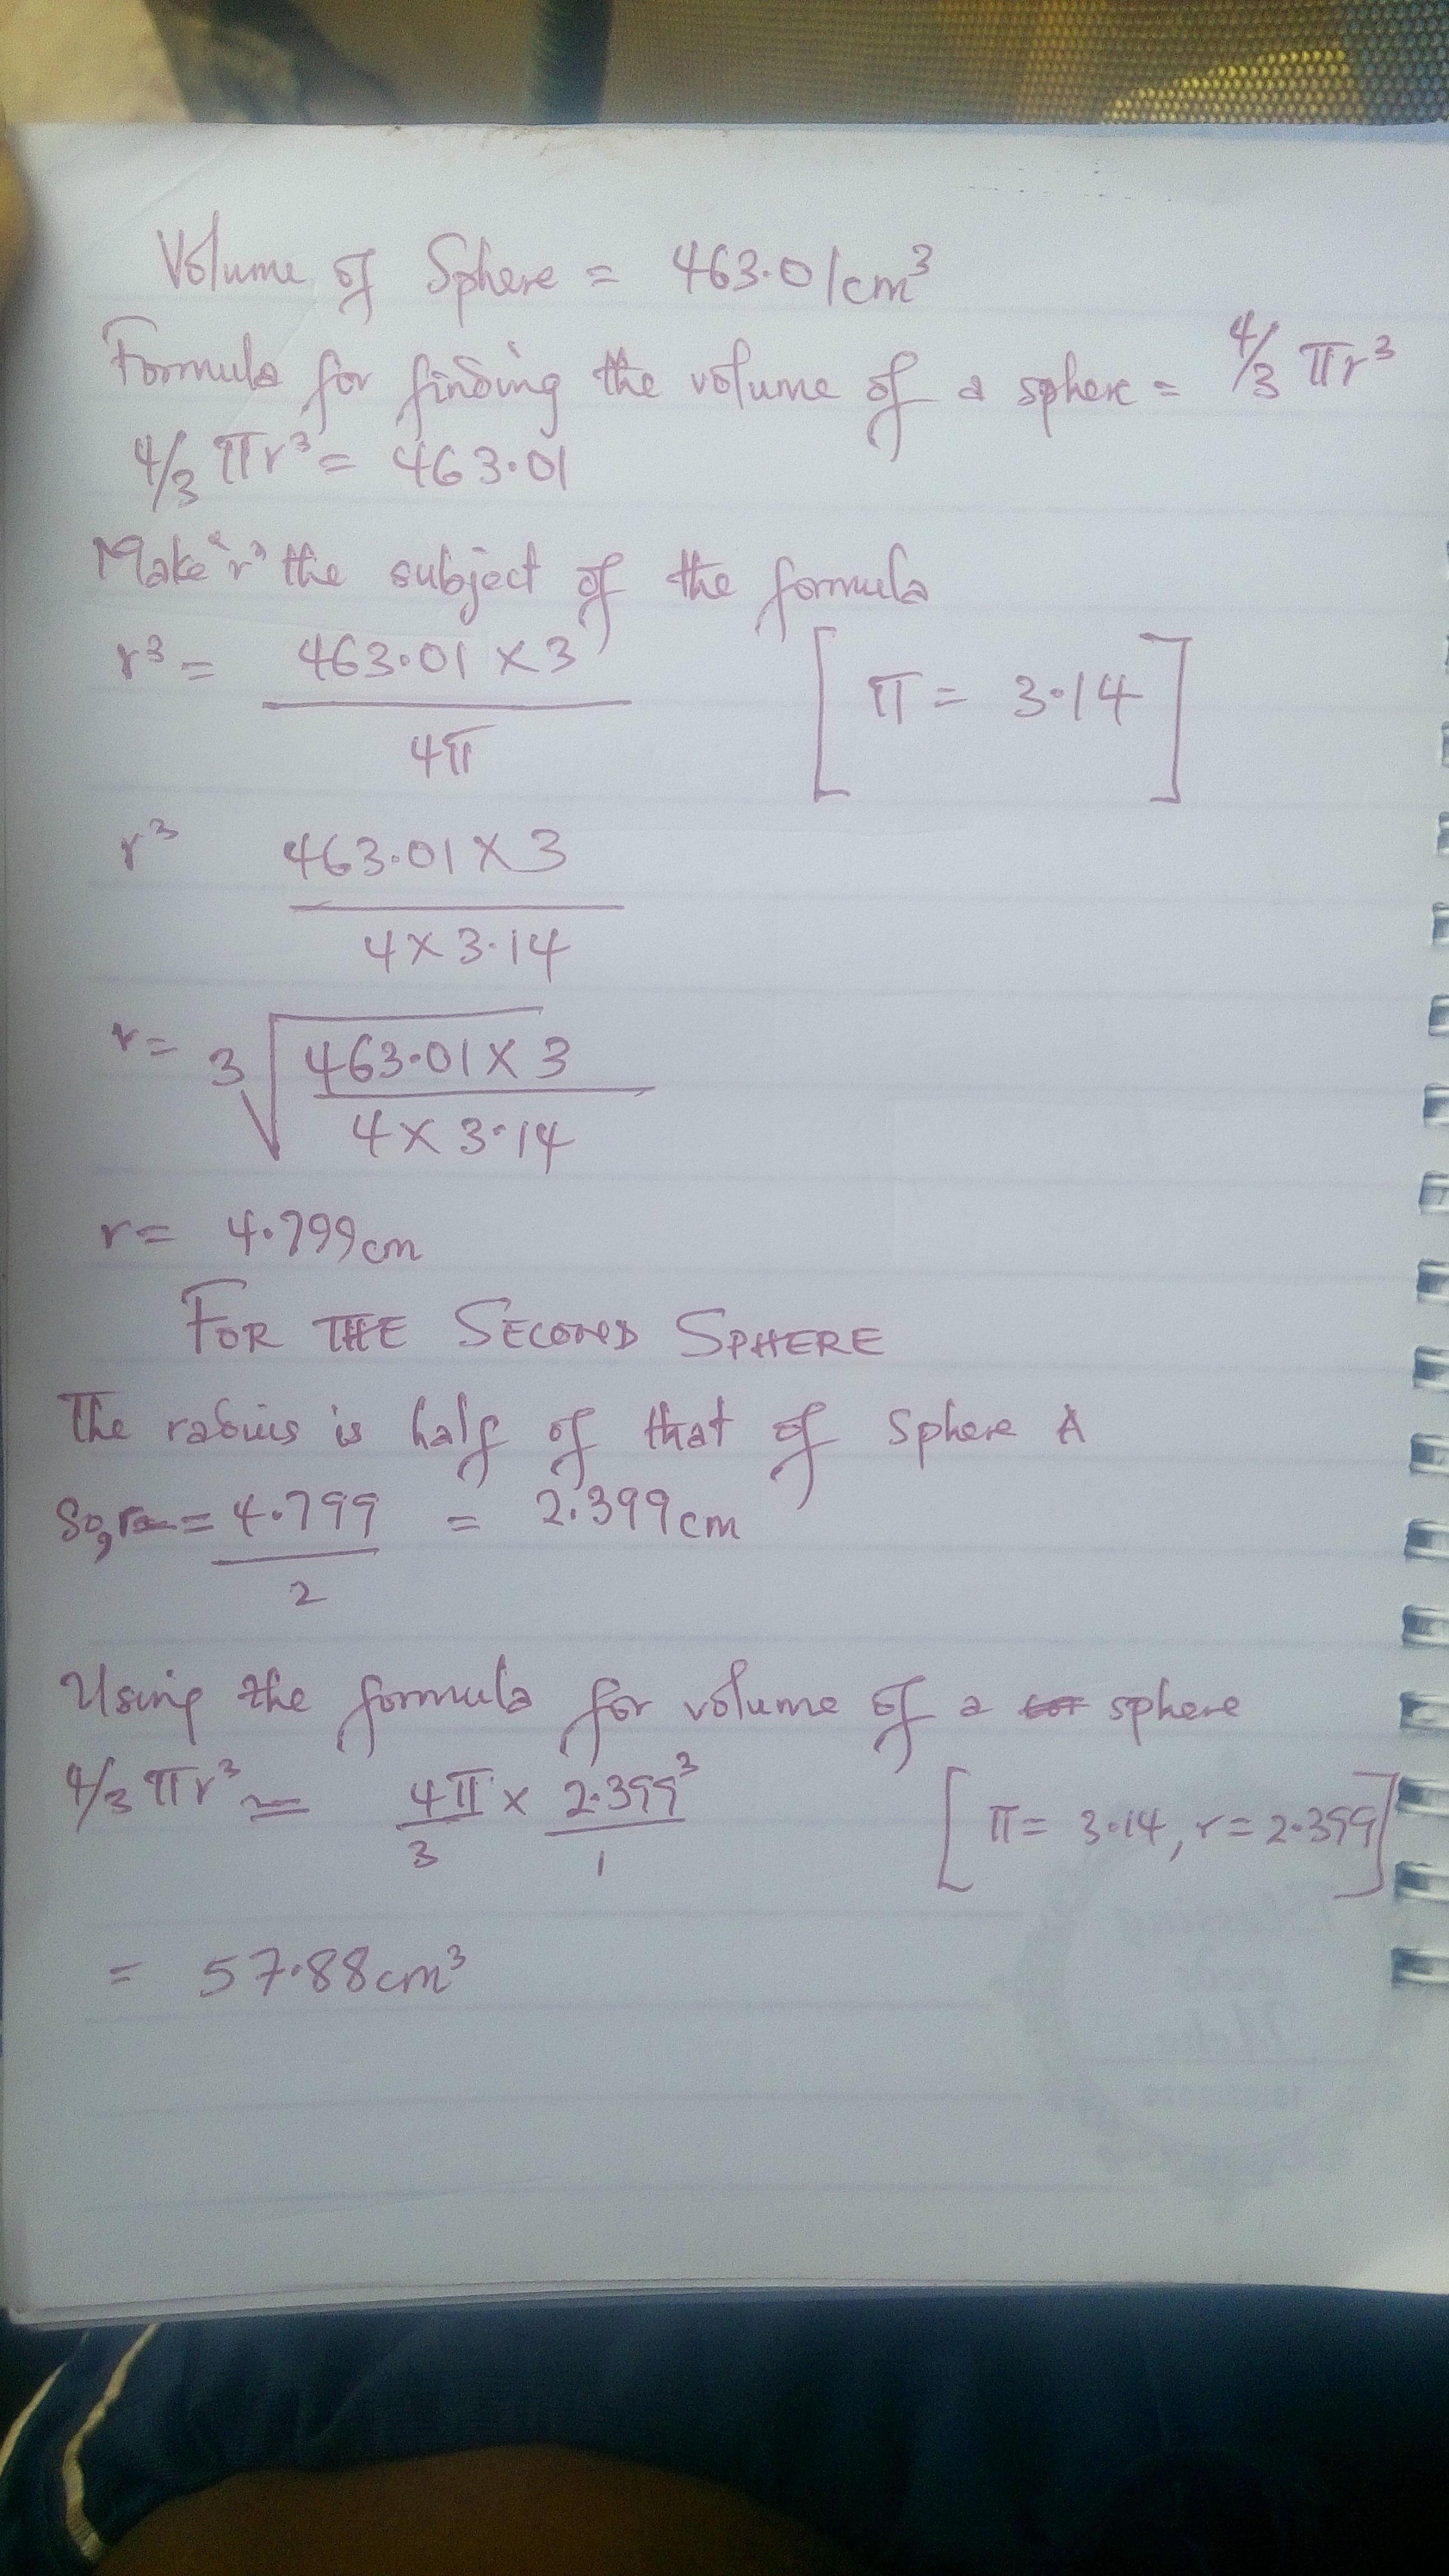 Volume of Sphere = 463.01cm³
Formula for finding the volume of a sphere = 4/3 πr³
4/3 πr³ = 463.01
Make "r" the subject of the formula
r³ = 463.01 × 3 / 4π [π = 3.14]
r³ 463.01 × 3 / 4 × 3.14
r = ³√ 463.01 × 3 / 4 × 3.14
r = 4.799cm
FOR THE SECOND SPHERE
The radius is half of that of sphere A
So, r = 4.799 / 2 = 2.399cm
Using the formula for volume of a sphere
4/3 πr³ = 4π / 3 × 2.399³ / 1 [π = 3.14, r = 2.399]
= 57.88cm³